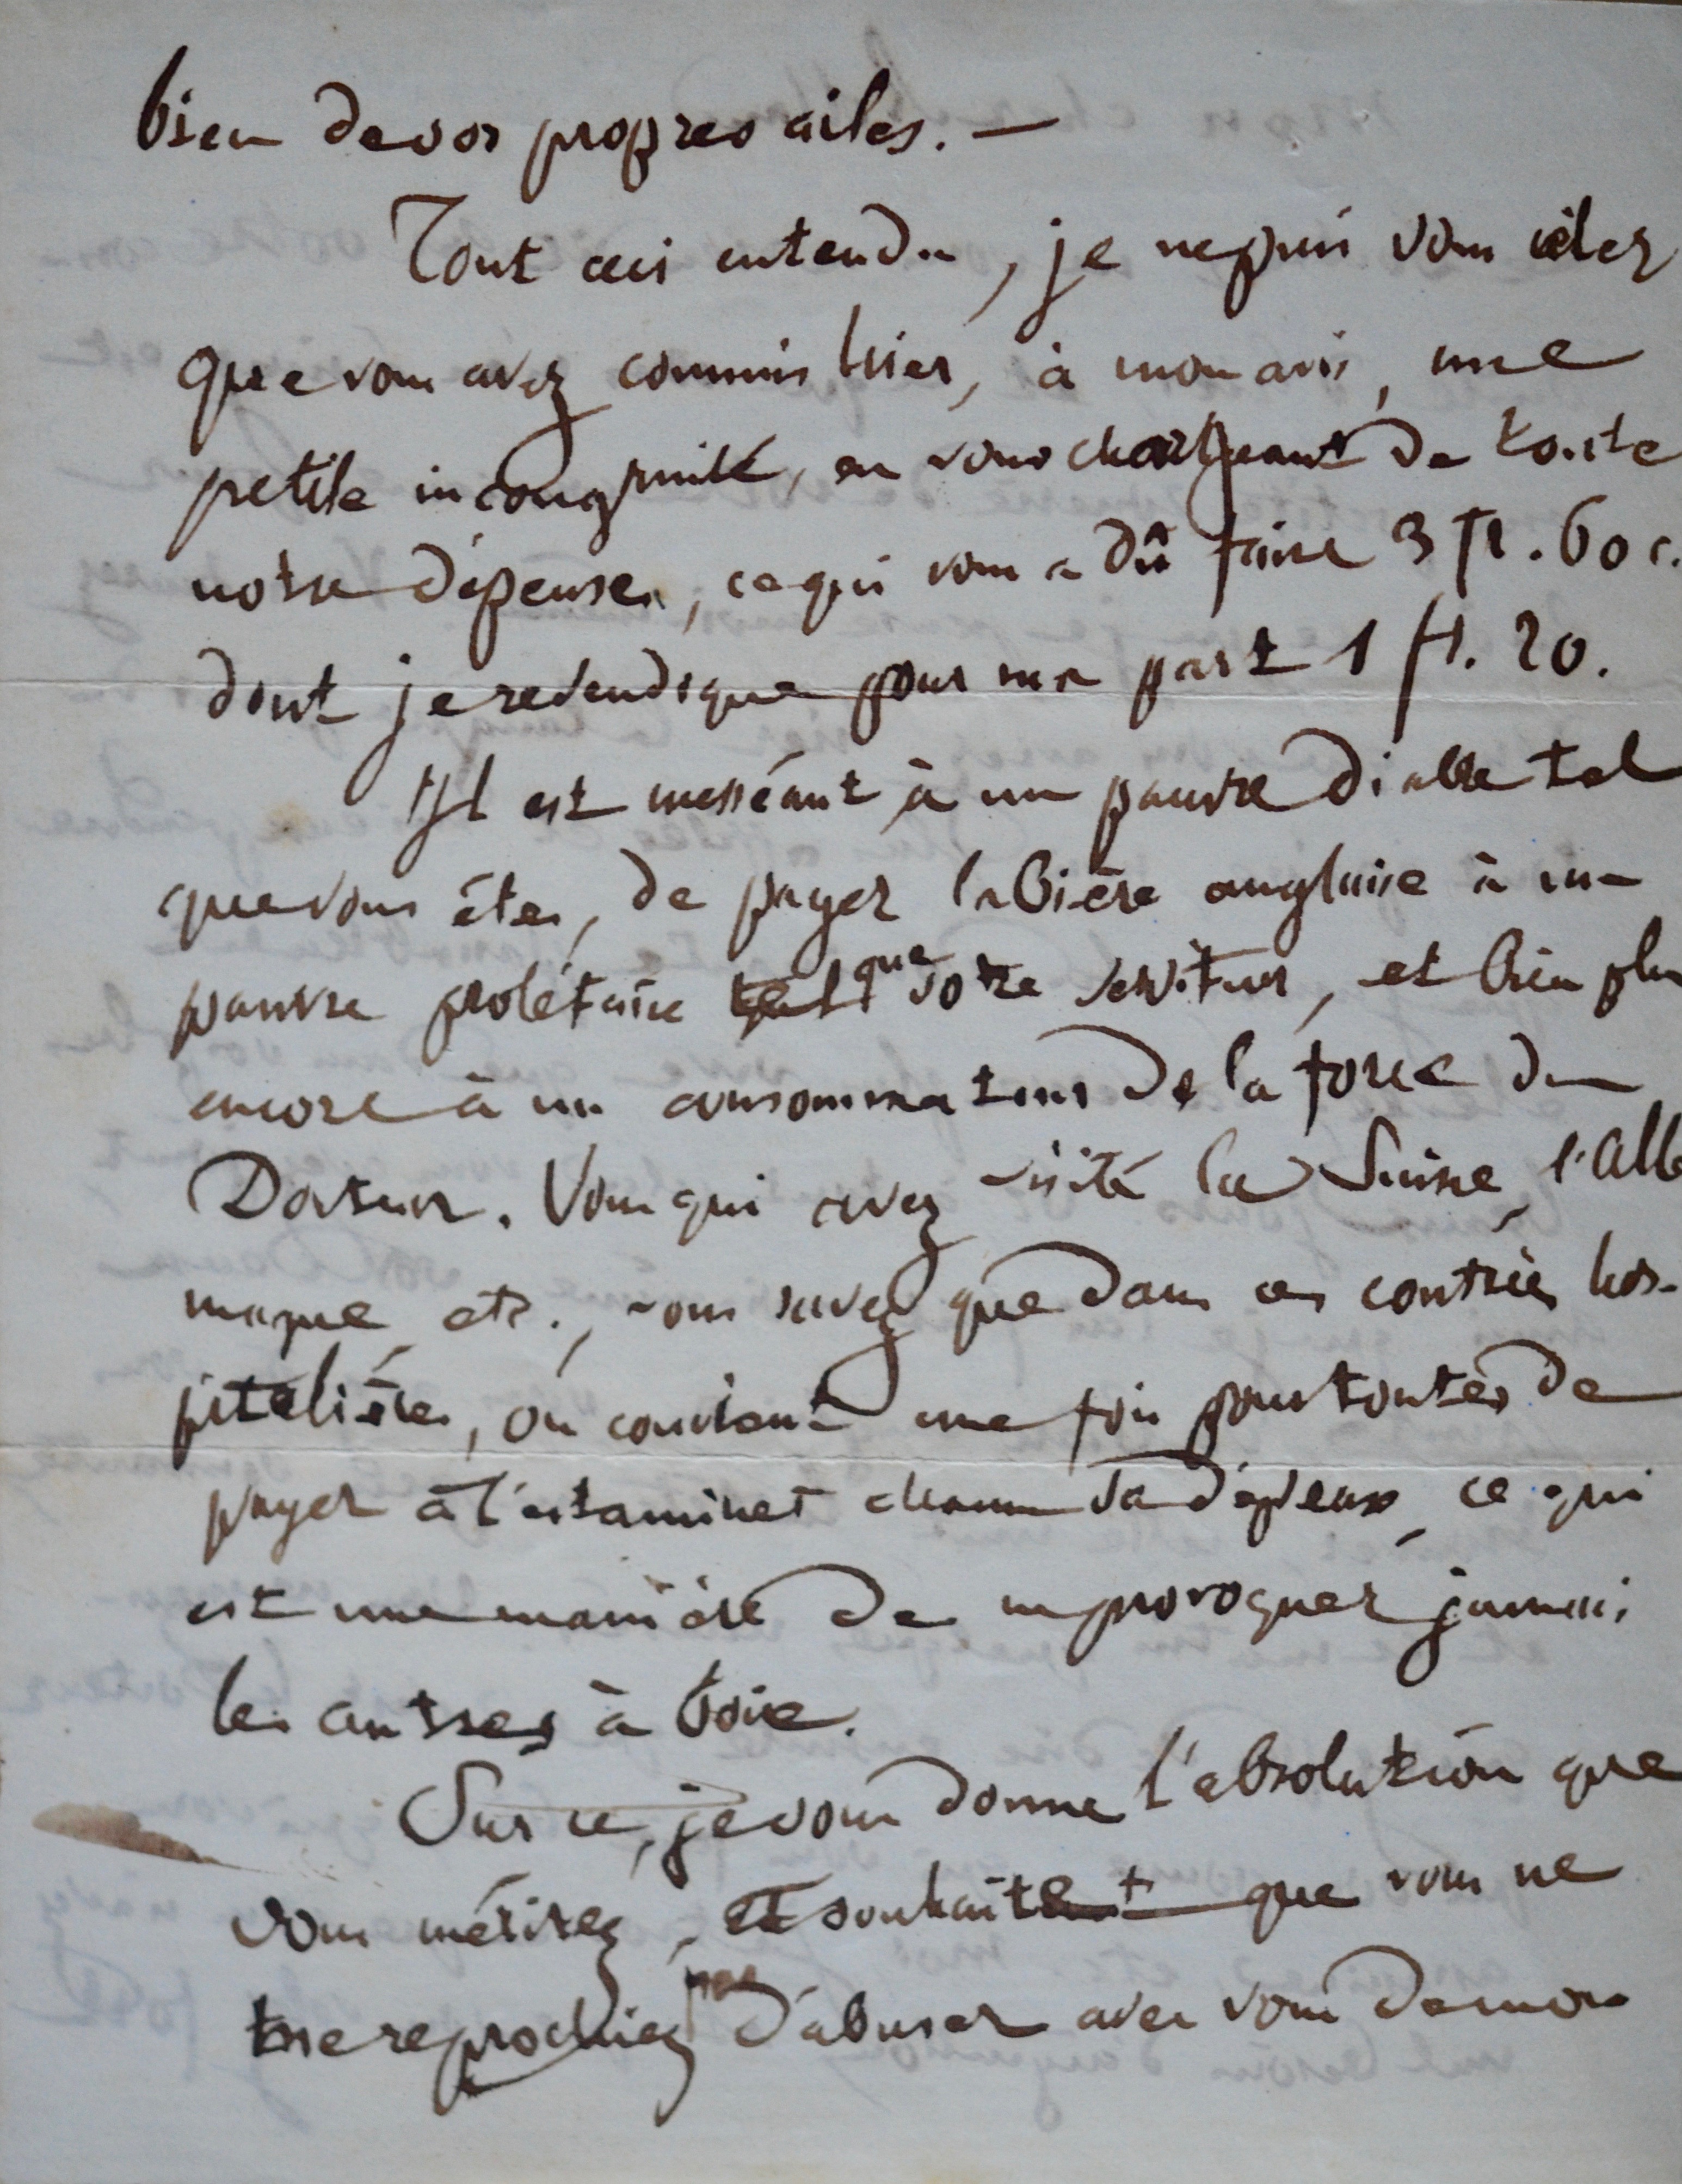 bien de vos propres ailes. —
Tout ceci entendu, je ne puis vous céler
que vous avez commis hier, à mon avis, une
petite incongruité, en vous chargeant de toute
notre dépense, ce qui vous a dû faire 3 fr. 60 c.
dont je revendique pour ma part 1 fr. 20.
Il est messéant à un pauvre diable tel
que vous êtes, de payer la bière anglaise à un
pauvre prolétaire tel que votre serviteur, et bien plus
encore à un consommateur de la force du
Docteur. Vous qui avez visité la Suisse, l'Alle
magne, etc., vous savez que dans ces contrées hos-
pitalières, on convient une fois pour toutes de
payer à l'estaminet chacun sa dépense, ce qui
est une manière de ne provoquer jamais
les autres à boire.
Sur ce, je vous donne l'absolution que
vous méritez, et souhaite que vous ne
me reprochiez pas d'abuser avec vous de mon